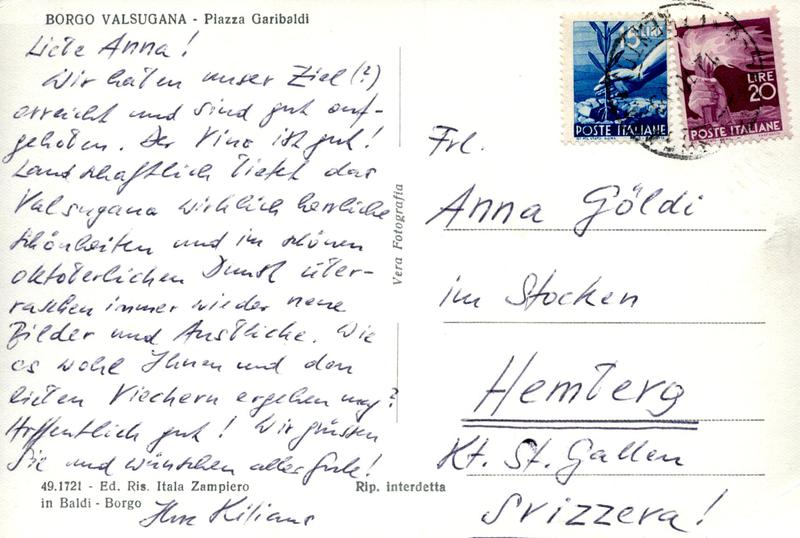 BORGO VALSUGANA - Piazza Garibaldi
Liebe Anna!
Wir haben unser Ziel (?)
erreicht und sind gut auf-
gehoben. Der Vino ist gut!
Landschaftlich bietet das
Valsugana wirklich herrliche
Schönheiten und im schönen
oktoberlichen Dunst über-
raschen immer wieder neue
Bilder und Ausblicke. Wie
es wohl Ihnen und den
lieben Viechern ergehen mag?
Hoffentlich gut! Wir grüssen
Sie und wünschen alles Gute!
Ihre Kilians
49.1721 - Ed. Ris. Itala Zampiero
in Baldi - Borgo
Rip. interdetta
Vera Fotografia
15 LIRE
POSTE ITALIANE
LIRE
20
POSTE ITALIANE
Frl.
Anna Göldi
im Stocken
Hemberg
Kt. St. Gallen
Svizzera!